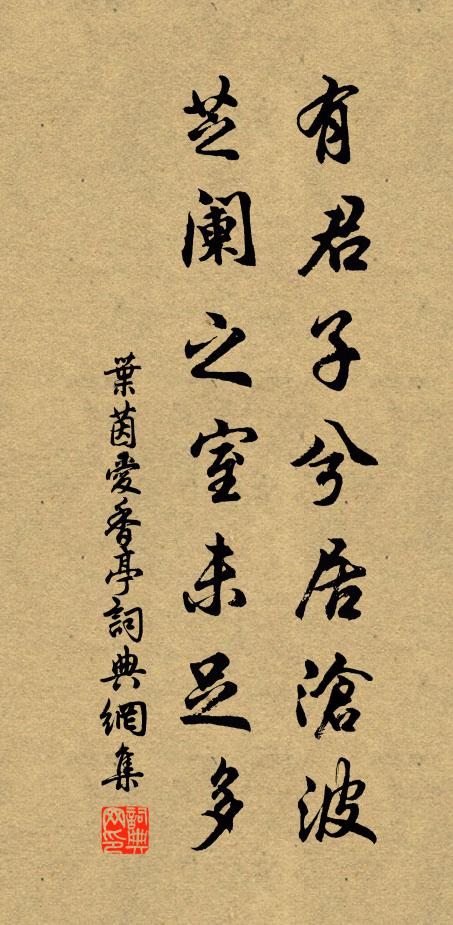 有君子兮居滄波
芝阑之室未足多
葉茵愛香亭詞典網集
詞典网印